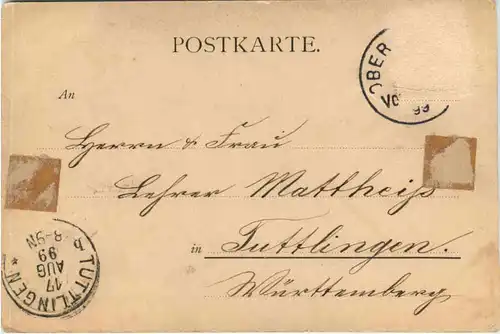 POSTKARTE.
OBER
VO
99
An
Herrn & Frau
Lehrer Mattheiß
in Tuttlingen.
Württemberg
TUTTLINGEN
17
AUG
99
8-9N